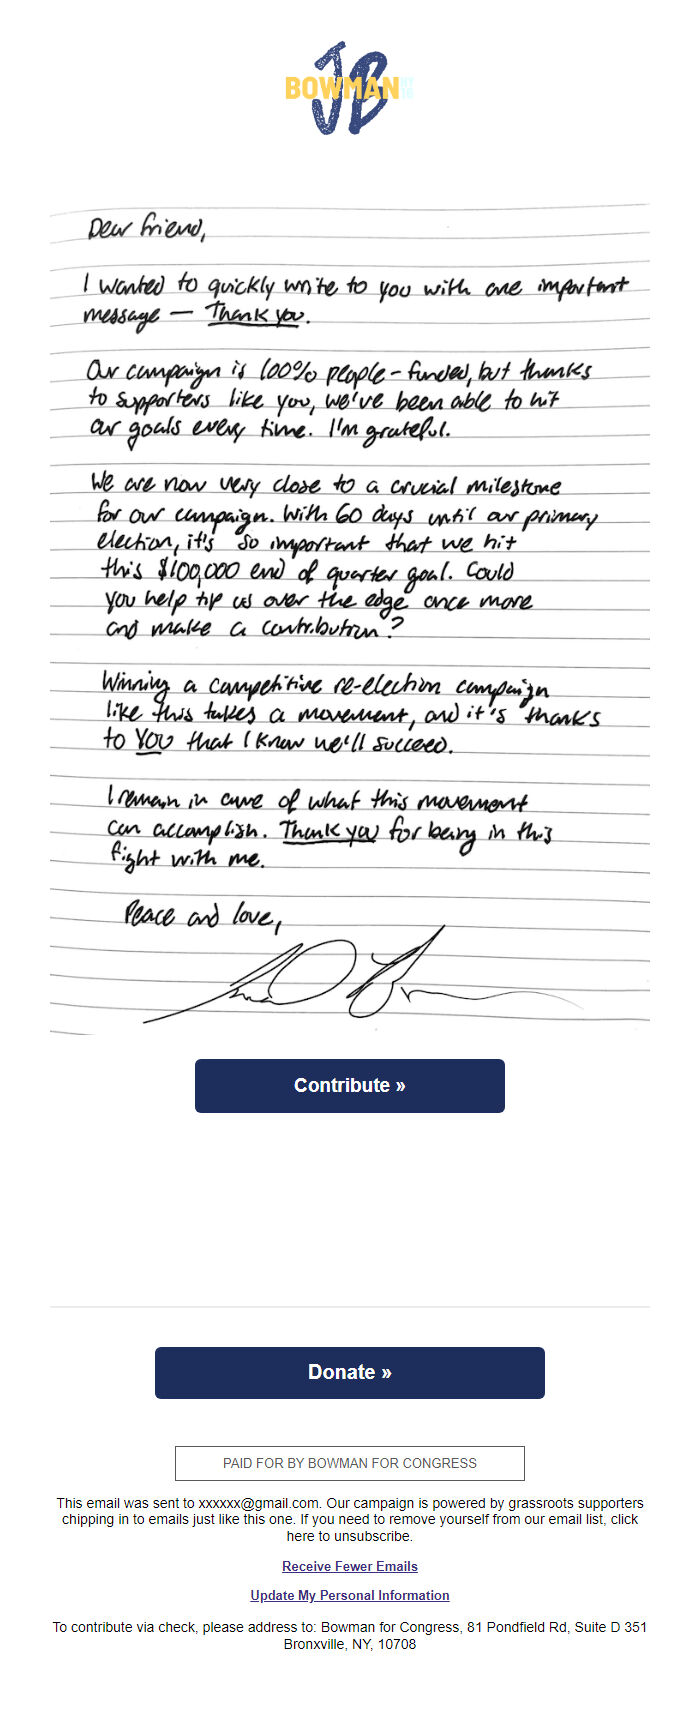 JB
BOWMAN
Dear friend,
I wanted to quickly write to you with one important
message — Thank you.
Our campaign is 100% people-funded, but thanks
to supporters like you, we've been able to hit
our goals every time. I'm grateful.
We are now very close to a crucial milestone
for our campaign. With 60 days until our primary
election, it's so important that we hit
this $100,000 end of quarter goal. Could
you help tip us over the edge once more
and make a contribution?
Winning a competitive re-election campaign
like this takes a movement, and it's thanks
to YOU that I know we'll succeed.
I remain in awe of what this movement
can accomplish. Thank you for being in this
fight with me.
Peace and love,
Contribute »
Donate »
PAID FOR BY BOWMAN FOR CONGRESS
This email was sent to xxxxxx@gmail.com. Our campaign is powered by grassroots supporters
chipping in to emails just like this one. If you need to remove yourself from our email list, click
here to unsubscribe.
Receive Fewer Emails
Update My Personal Information
To contribute via check, please address to: Bowman for Congress, 81 Pondfield Rd, Suite D 351
Bronxville, NY, 10708